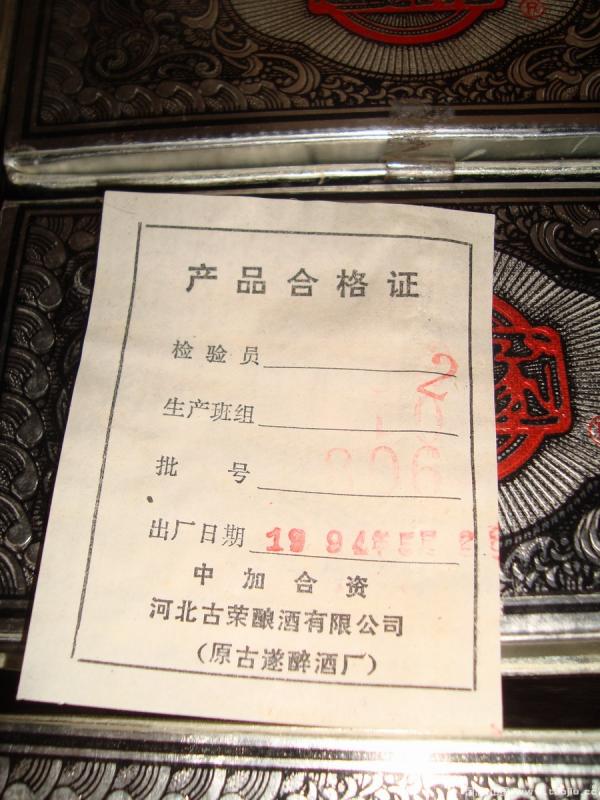 ®
产品合格证
检验员 2
生产班组
批号 806
出厂日期 1994年5月2
中加合资
河北古荣酿酒有限公司
（原古遂醉酒厂）